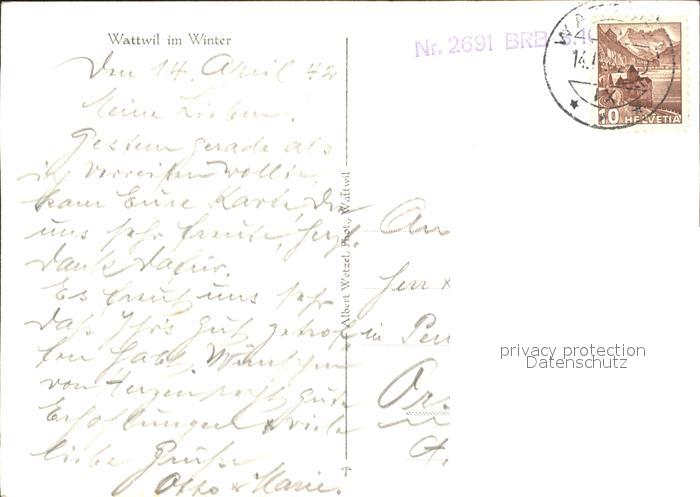 Wattwil im Winter
Den 14. April 42
Meine Lieben!
Gestern gerade als
ich verreisen wollte,
kam Eure Karte, die
uns sehr freute, herzl.
Dank dafür.
Es freut uns sehr
daß Ihr's gut getrof-
fen habt. Wünschen
von Herzen recht gute
Erhollungen & viele
liebe Grüße
Otto & Marie.
Albert Wetzel, Phot., Wattwil
Nr. 2691 BRB 3.40
WATT
14.
HELVETIA
10
An
Herr &
in Pen
privacy protection
Datenschutz